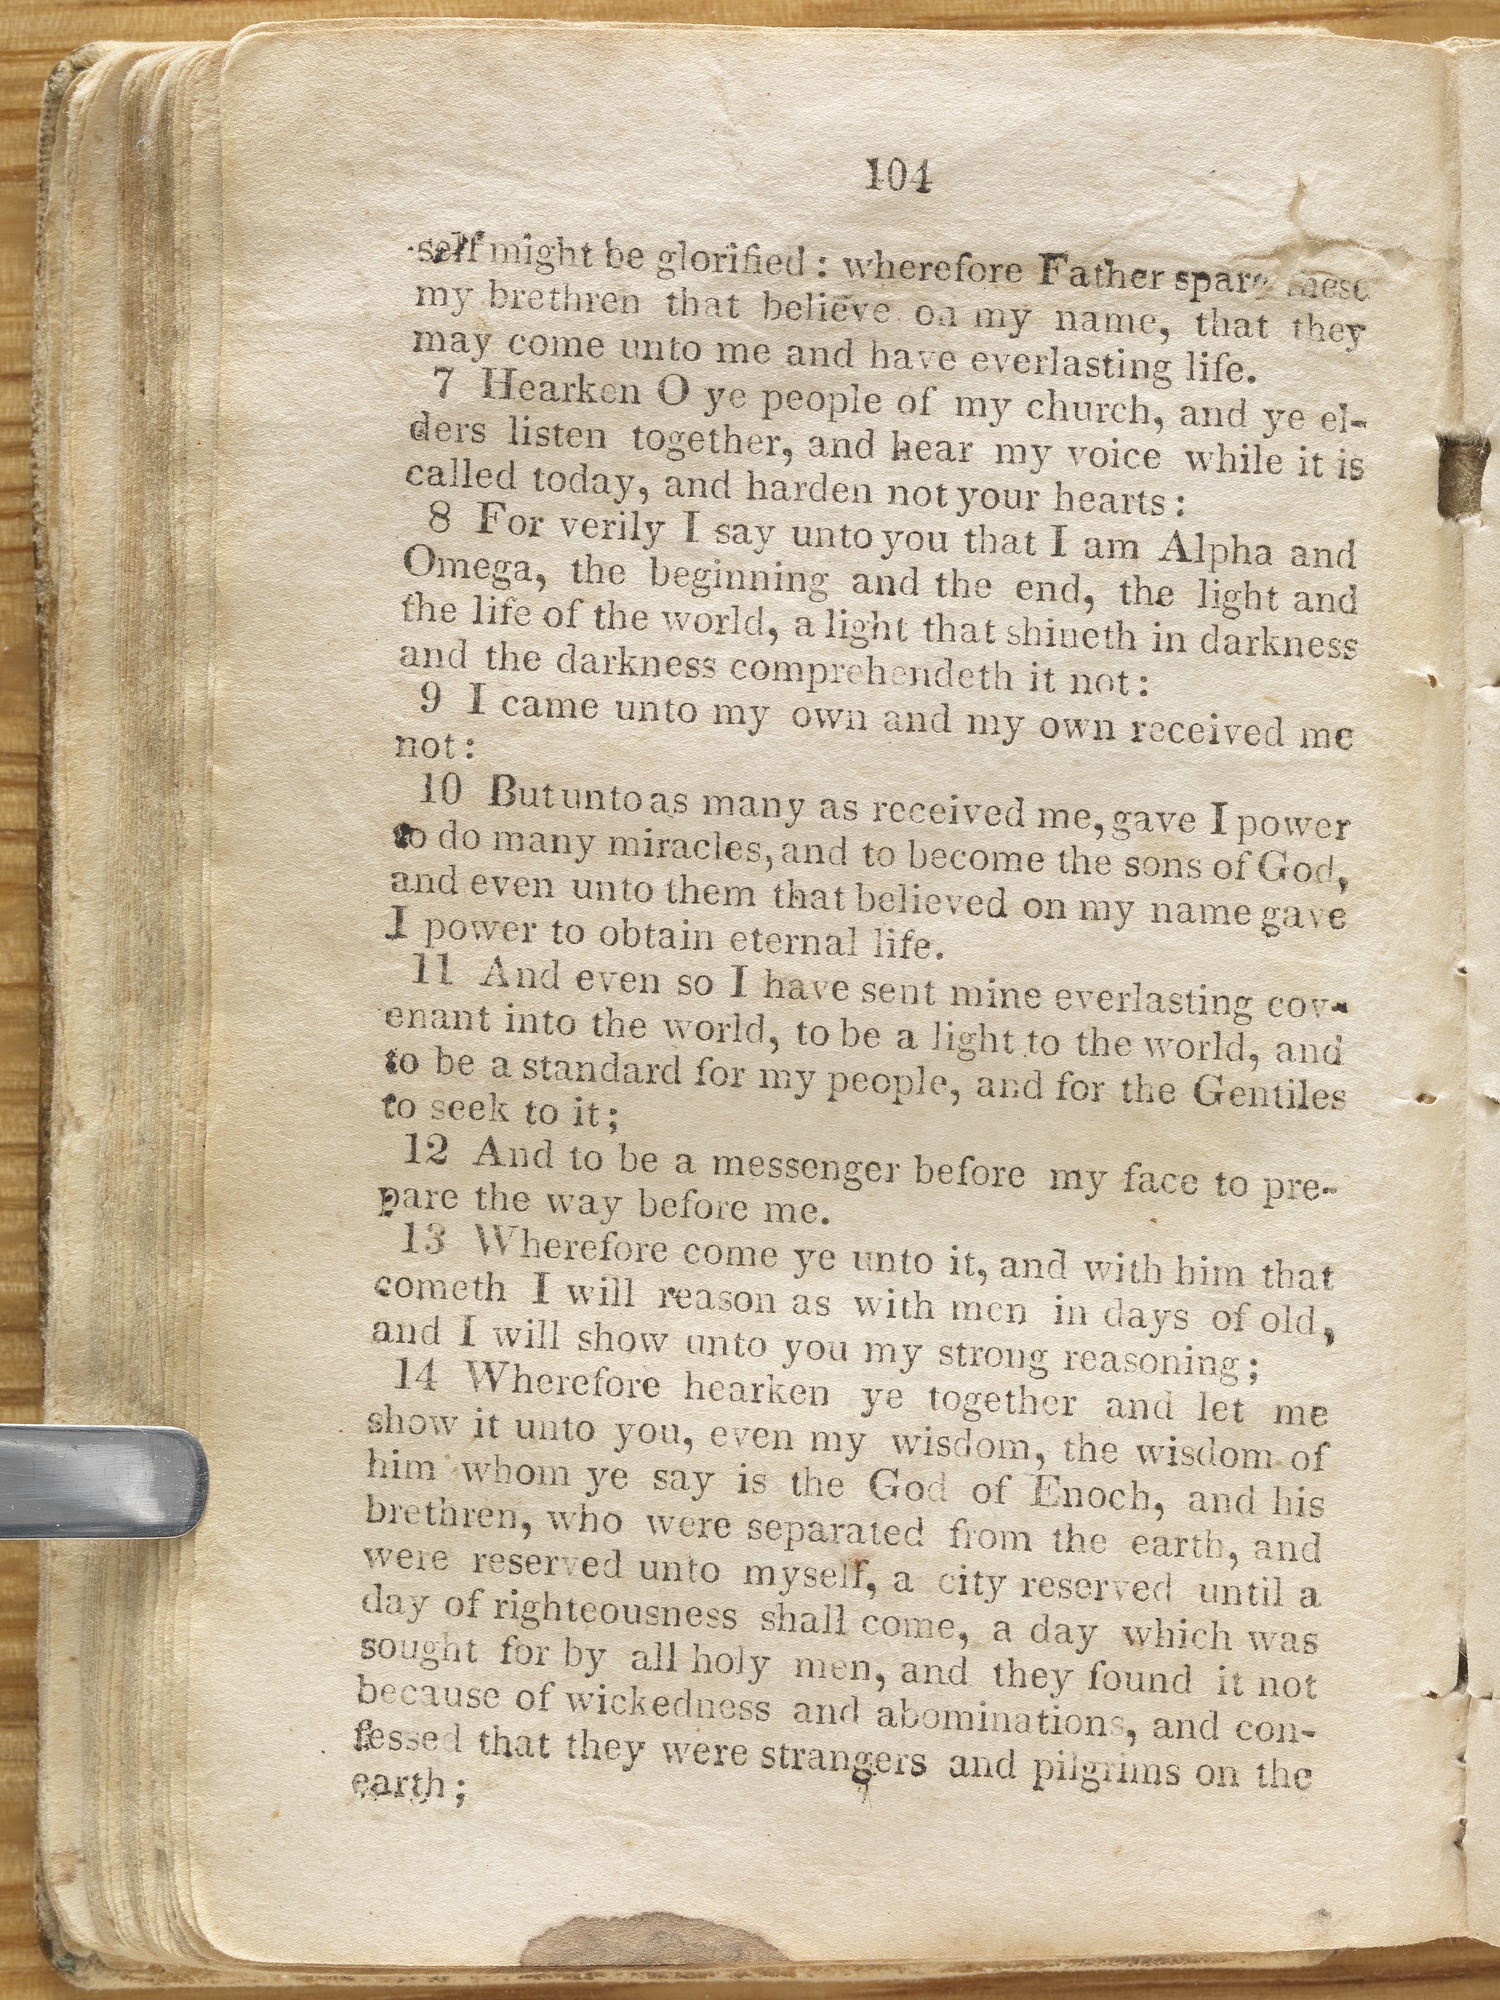 104
self might be glorified : wherefore Father spare these
my brethren that believe on my name, that they
may come unto me and have everlasting life.
7 Hearken O ye people of my church, and ye el-
ders listen together, and hear my voice while it is
called today, and harden not your hearts :
8 For verily I say unto you that I am Alpha and
Omega, the beginning and the end, the light and
the life of the world, a light that shineth in darkness
and the darkness comprehendeth it not :
9 I came unto my own and my own received me
not :
10 But unto as many as received me, gave I power
to do many miracles, and to become the sons of God,
and even unto them that believed on my name gave
I power to obtain eternal life.
11 And even so I have sent mine everlasting cov-
enant into the world, to be a light to the world, and
to be a standard for my people, and for the Gentiles
to seek to it ;
12 And to be a messenger before my face to pre-
pare the way before me.
13 Wherefore come ye unto it, and with him that
cometh I will reason as with men in days of old,
and I will show unto you my strong reasoning ;
14 Wherefore hearken ye together and let me
show it unto you, even my wisdom, the wisdom of
him whom ye say is the God of Enoch, and his
brethren, who were separated from the earth, and
were reserved unto myself, a city reserved until a
day of righteousness shall come, a day which was
sought for by all holy men, and they found it not
because of wickedness and abominations, and con-
fessed that they were strangers and pilgrims on the
earth ;